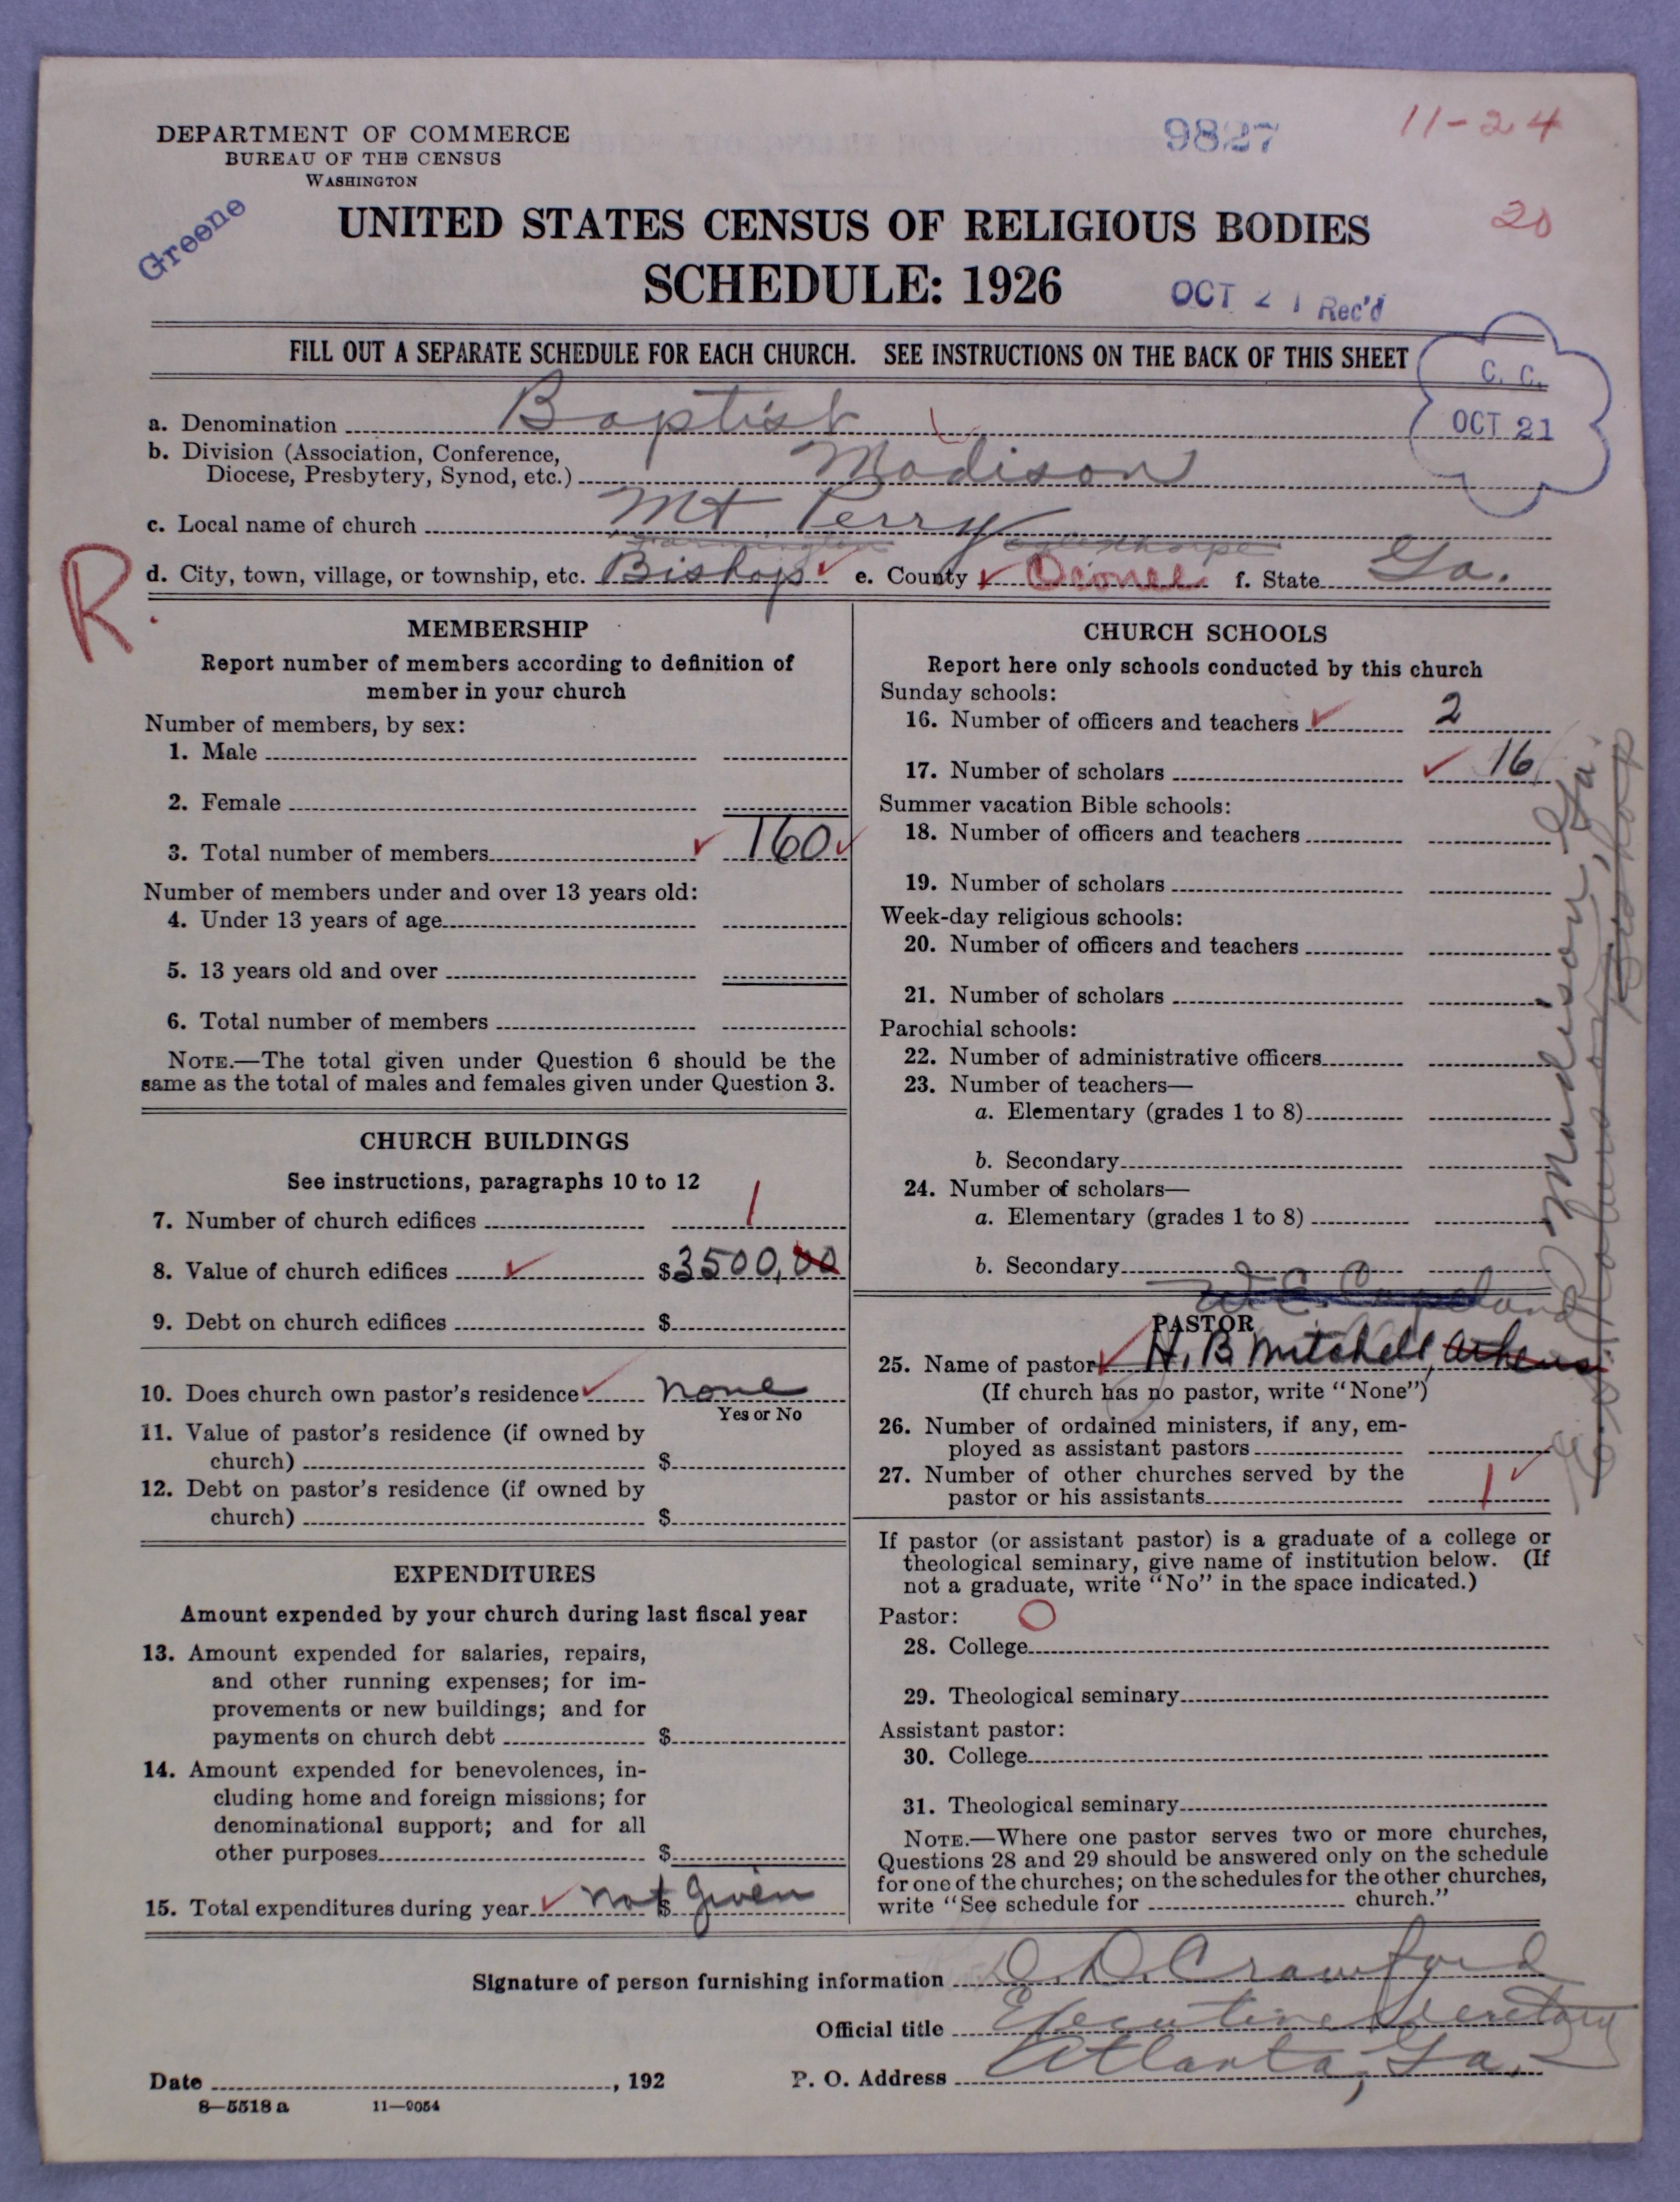 DEPARTMENT OF COMMERCE
BUREAU OF THE CENSUS
WASHINGTON
Greene
9827
11-24
20
UNITED STATES CENSUS OF RELIGIOUS BODIES
SCHEDULE: 1926
OCT 21 Rec'd
FILL OUT A SEPARATE SCHEDULE FOR EACH CHURCH. SEE INSTRUCTIONS ON THE BACK OF THIS SHEET
C. C.
OCT 21
a. Denomination Baptist
b. Division (Association, Conference,
Diocese, Presbytery, Synod, etc.) Madison
c. Local name of church Mt Perry
Farmington Oglethorpe
R.
d. City, town, village, or township, etc. Bishop e. County Oconee f. State Ga.
MEMBERSHIP
Report number of members according to definition of
member in your church
Number of members, by sex:
1. Male
2. Female
3. Total number of members 160
Number of members under and over 13 years old:
4. Under 13 years of age
5. 13 years old and over
6. Total number of members
NOTE.—The total given under Question 6 should be the
same as the total of males and females given under Question 3.
CHURCH BUILDINGS
See instructions, paragraphs 10 to 12
7. Number of church edifices 1
8. Value of church edifices $3500,00
9. Debt on church edifices $
10. Does church own pastor's residence none
Yes or No
11. Value of pastor's residence (if owned by
church) $
12. Debt on pastor's residence (if owned by
church) $
EXPENDITURES
Amount expended by your church during last fiscal year
13. Amount expended for salaries, repairs,
and other running expenses; for im-
provements or new buildings; and for
payments on church debt $
14. Amount expended for benevolences, in-
cluding home and foreign missions; for
denominational support; and for all
other purposes $
15. Total expenditures during year $ not given
CHURCH SCHOOLS
Report here only schools conducted by this church
Sunday schools:
16. Number of officers and teachers 2
17. Number of scholars 16
Summer vacation Bible schools:
18. Number of officers and teachers
19. Number of scholars
Week-day religious schools:
20. Number of officers and teachers
21. Number of scholars
Parochial schools:
22. Number of administrative officers
23. Number of teachers—
a. Elementary (grades 1 to 8)
b. Secondary
24. Number of scholars—
a. Elementary (grades 1 to 8)
b. Secondary
W. C. Copeland
PASTOR
25. Name of pastor H. B Mitchell, Athens
(If church has no pastor, write "None")
26. Number of ordained ministers, if any, em-
ployed as assistant pastors
27. Number of other churches served by the
pastor or his assistants 1
If pastor (or assistant pastor) is a graduate of a college or
theological seminary, give name of institution below. (If
not a graduate, write "No" in the space indicated.)
Pastor: O
28. College
29. Theological seminary
Assistant pastor:
30. College
31. Theological seminary
NOTE.—Where one pastor serves two or more churches,
Questions 28 and 29 should be answered only on the schedule
for one of the churches; on the schedules for the other churches,
write "See schedule for church."
Madison, Ga.
Bishop
Signature of person furnishing information D. D. Crawford
Official title Executive Secretary
Date , 192 P. O. Address Atlanta, Ga.
8—5518 a 11—9054